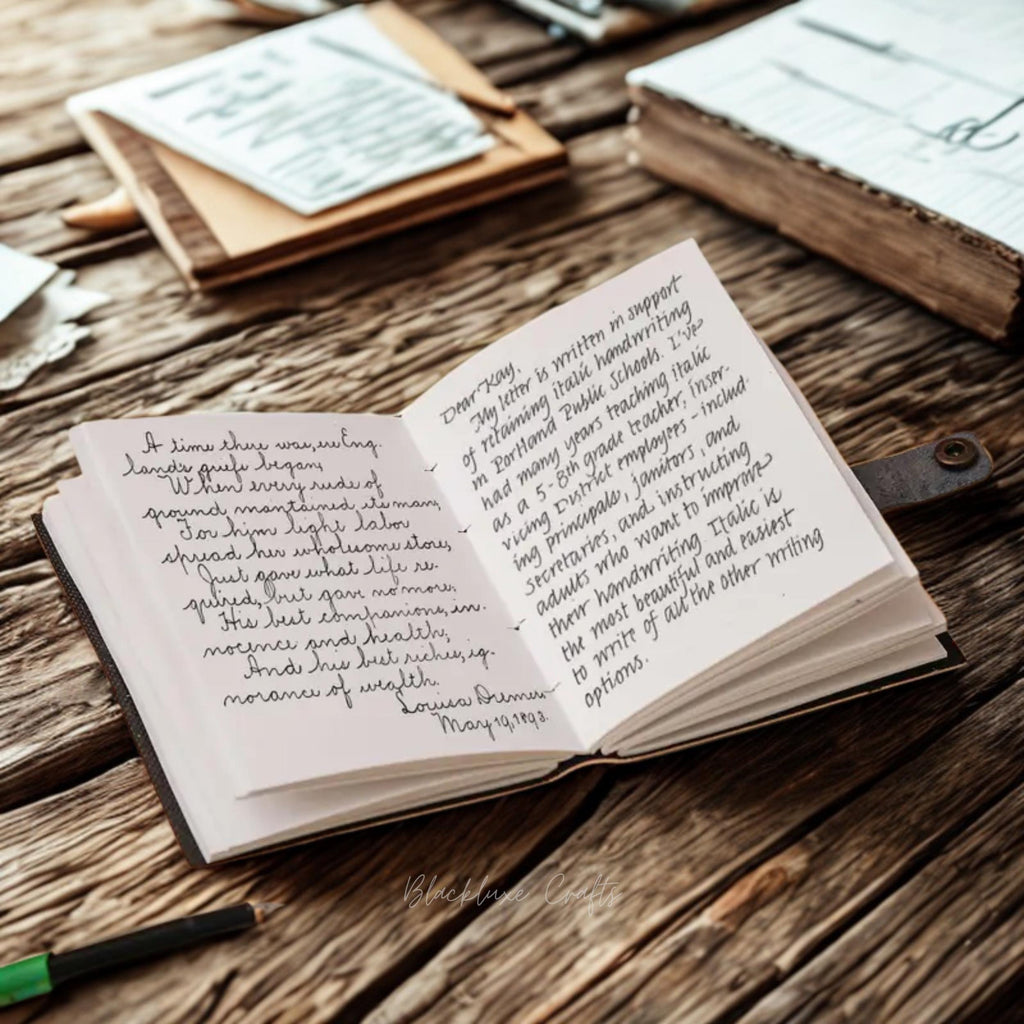 A time there was, ere Eng-
land's griefs began,
When every rude of
ground mantained its man,
For him light labor
spread her wholesome store,
Just gave what life re-
quired, but gave no more;
His best companions, in-
nocence and health;
And his best riches, ig-
norance of wealth.
Louisa
May 19, 1893.
Dear Kay,
My letter is written in support
of retaining italic handwriting
in Portland Public Schools. I've
had many years teaching italic
as a 5-8th grade teacher, inser-
vicing District employees - includ-
ing principals, janitors, and
secretaries, and instructing
adults who want to improve
their handwriting. Italic is
the most beautiful and easiest
to write of all the other writing
options.
Blackluxe Crafts